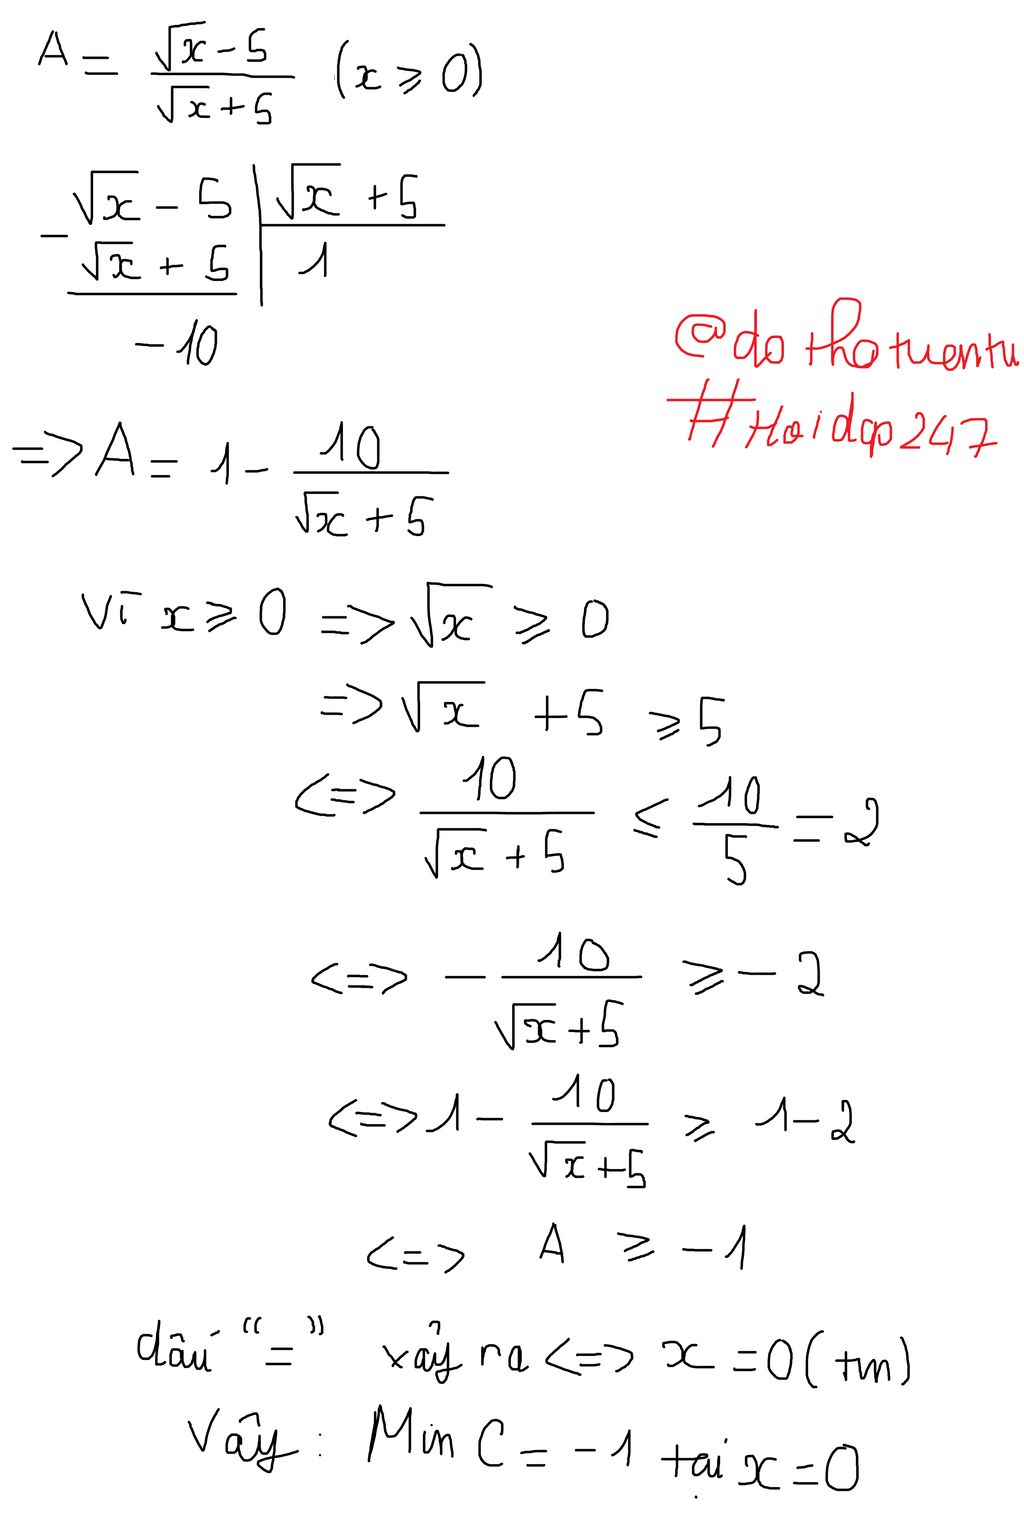 A = (√x - 5)/(√x + 5) (x ≥ 0)
√x - 5 | √x + 5
- √x + 5 | 1
-10
@do thatuentu
#Hoidap247
=> A = 1 - 10/(√x + 5)
Vì x ≥ 0 => √x ≥ 0
=> √x + 5 ≥ 5
<=> 10/(√x + 5) ≤ 10/5 = 2
<=> - 10/(√x + 5) ≥ - 2
<=> 1 - 10/(√x + 5) ≥ 1 - 2
<=> A ≥ -1
dấu "=" xảy ra <=> x = 0 (tm)
Vậy: Min C = -1 tại x = 0